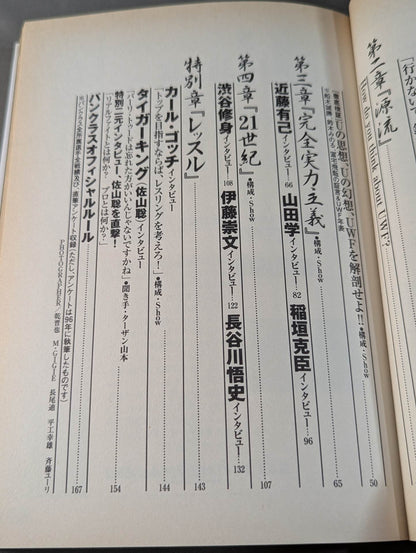 「行かな
第二章『源流』
How do you think about UWF?
Uの思想、Uの幻想、UWFを解剖せよ!!●構成・Show
50
65
第三章『完全実力主義』●構成・Show
近藤有己インタビュー 66 山田学インタビュー 82 稲垣克臣インタビュー 96
107
第四章『21世紀』●構成・Show
渋谷修身インタビュー 108 伊藤崇文インタビュー 122 長谷川悟史インタビュー 132
特別章『レッスル』
143
カール・ゴッチインタビュー
「トップを目指すならば、レスリングを考えろ!」●構成・Show
144
タイガーキング(佐山聡)インタビュー
「バーリ・トゥードは忘れた方がいいんじゃないですかね」●聞き手・ターザン山本
特別二元インタビュー、佐山聡を直撃!
「リアルファイトとは何か? プロとは何か?」
154
パンクラスオフィシャルルール
167
※パンクラス全所属選手全戦績及び、直筆アンケート収録(ただし、アンケートは96年に執筆したものです)
PHOTOGRAPHER・乾晋也 M・GIGIE 長尾迪 平工幸雄 斉藤ユーリ